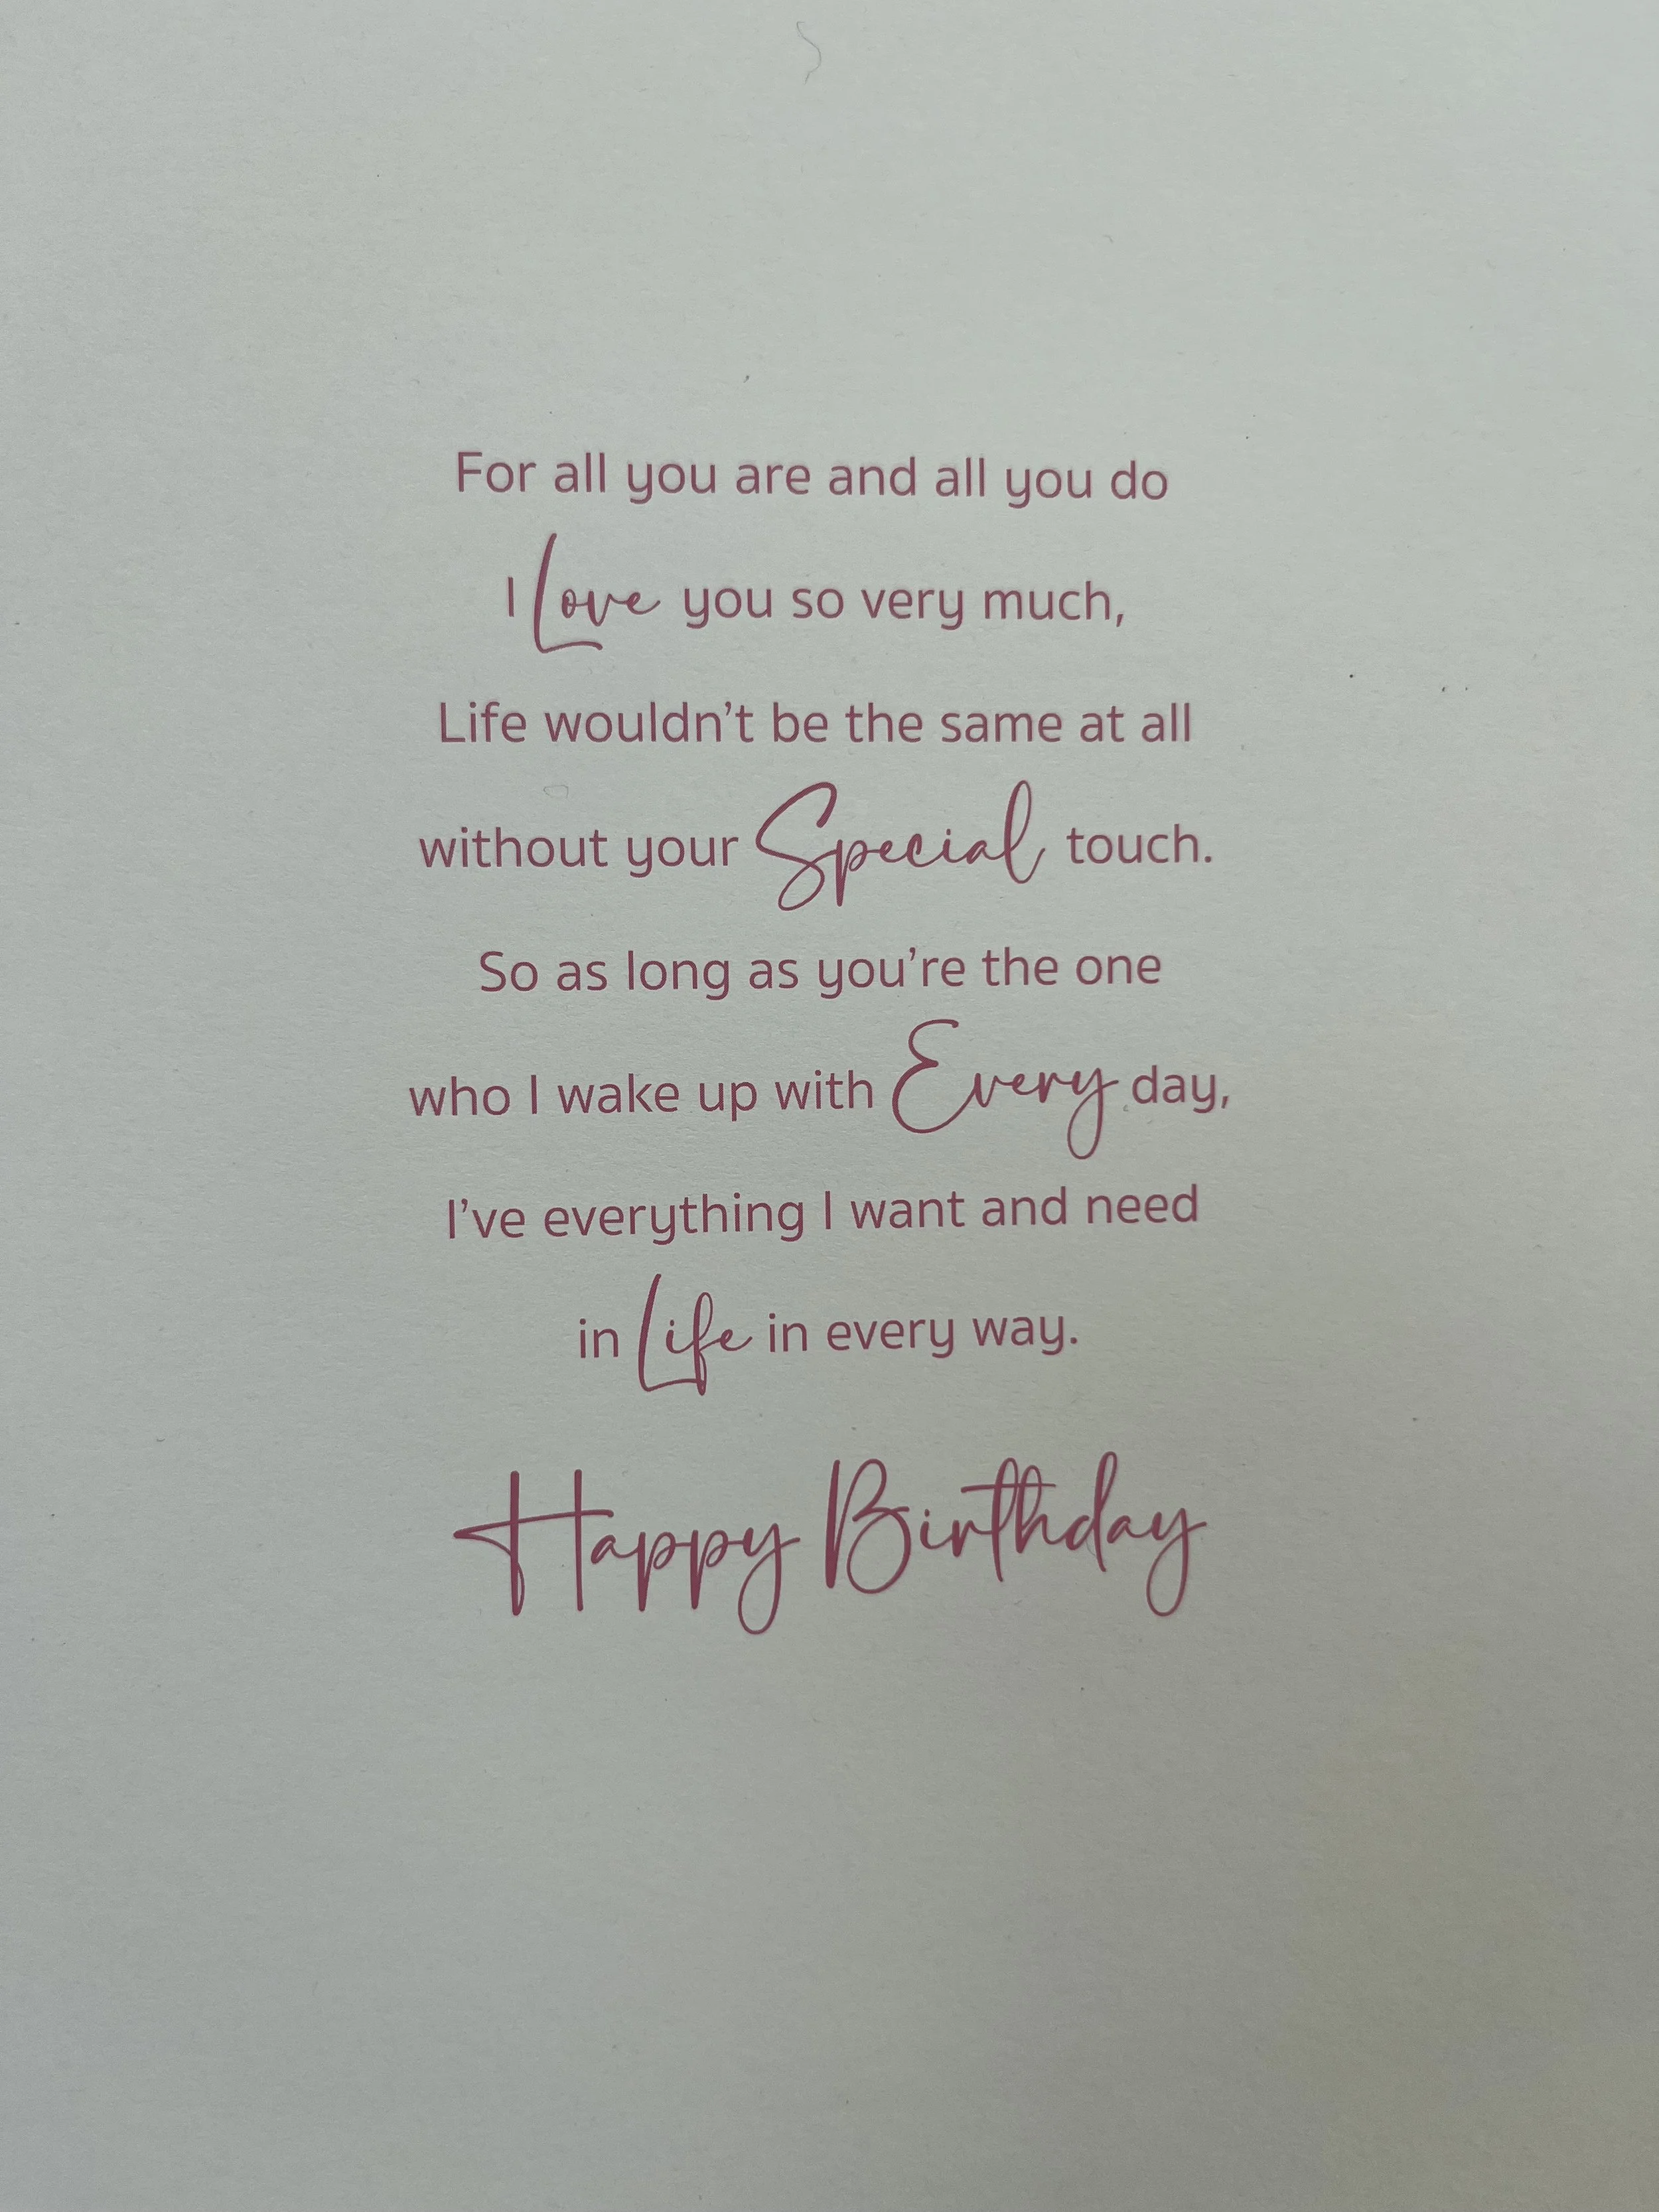 For all you are and all you do
I Love you so very much,
Life wouldn't be the same at all
without your Special touch.
So as long as you're the one
who I wake up with Every day,
I've everything I want and need
in Life in every way.
Happy Birthday